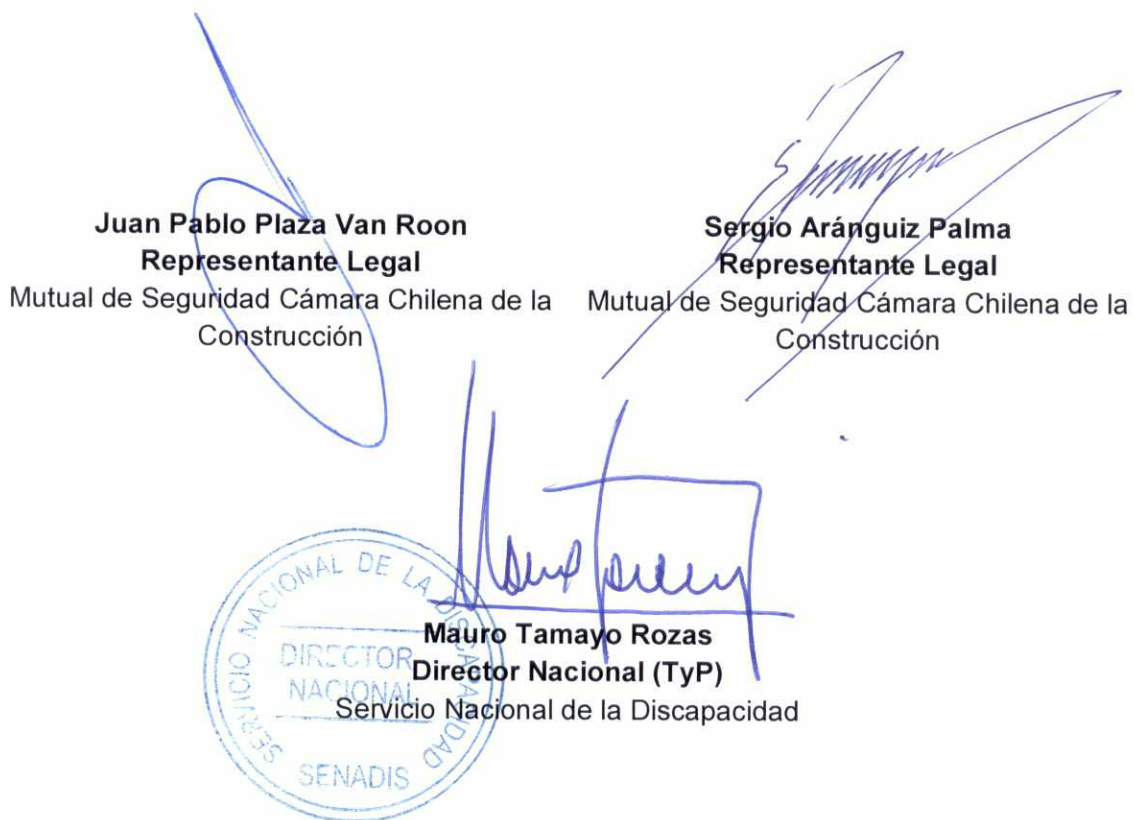 Juan Pablo Plaza Van Roon
Representante Legal
Mutual de Seguridad Cámara Chilena de la
Construcción
Sergio Aránguiz Palma
Representante Legal
Mutual de Seguridad Cámara Chilena de la
Construcción
Mauro Tamayo Rozas
Director Nacional (TyP)
Servicio Nacional de la Discapacidad
SERVICIO NACIONAL DE LA DISCAPACIDAD
DIRECTOR
NACIONAL
SENADIS